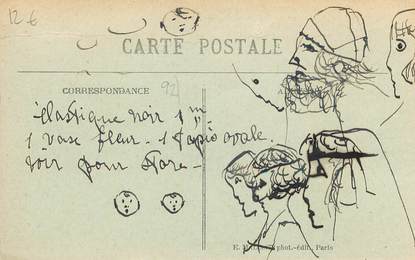 12 €
CARTE POSTALE
CORRESPONDANCE
92
élastique noir 1 m.
1 vase fleur - 1 tapis ovale.
voir pour store -
Paris